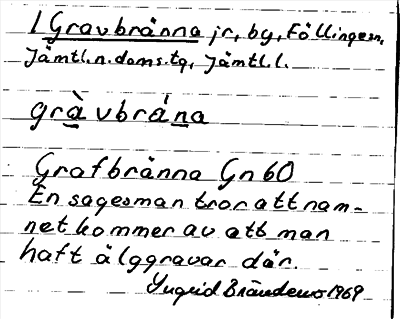 1 Gravbränna jr, by, Föllingesn,
Jämtl.n.doms.tg, Jämtl.l.
gràvbrána
Grafbränna Gn 60
En sagesman tror att nam-
net kommer av att man
haft älggravar där.
Yngrid Brändemo 1969